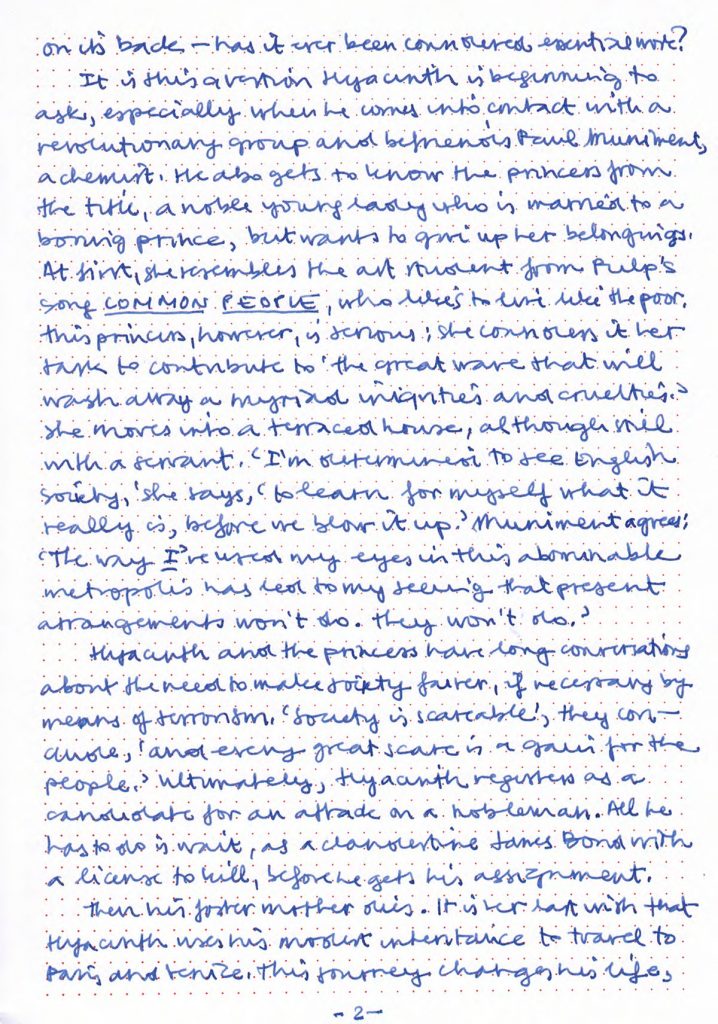 on its back – has it ever been considered essential work?
It is this question Hyacinth is beginning to
ask, especially when he comes into contact with a
revolutionary group and befriends Paul Muniment,
a chemist. He also gets to know the princess from
the title, a noble young lady who is married to a
boring prince, but wants to give up her belongings.
At first, she resembles the art student from Pulp's
song COMMON PEOPLE, who likes to live like the poor.
This princess, however, is serious; she considers it her
task to contribute to 'the great wave that will
wash away a myriad iniquities and cruelties.'
She moves into a terraced house, although still
with a servant. 'I'm determined to see English
society,' she says, 'to learn for myself what it
really is, before we blow it up.' Muniment agrees:
'The way I've used my eyes in this abominable
metropolis has led to my seeing that present
arrangements won't do. They won't do.'
Hyacinth and the princess have long conversations
about the need to make society fairer, if necessary by
means of terrorism. 'Society is scareable', they con-
clude, 'and every great scare is a gain for the
people.' Ultimately, Hyacinth registers as a
candidate for an attack on a nobleman. All he
has to do is wait, as a clandestine James Bond with
a license to kill, before he gets his assignment.
Then his foster mother dies. It is her last wish that
Hyacinth uses his modest inheritance to travel to
Paris and Venice. This journey changes his life,
- 2 -